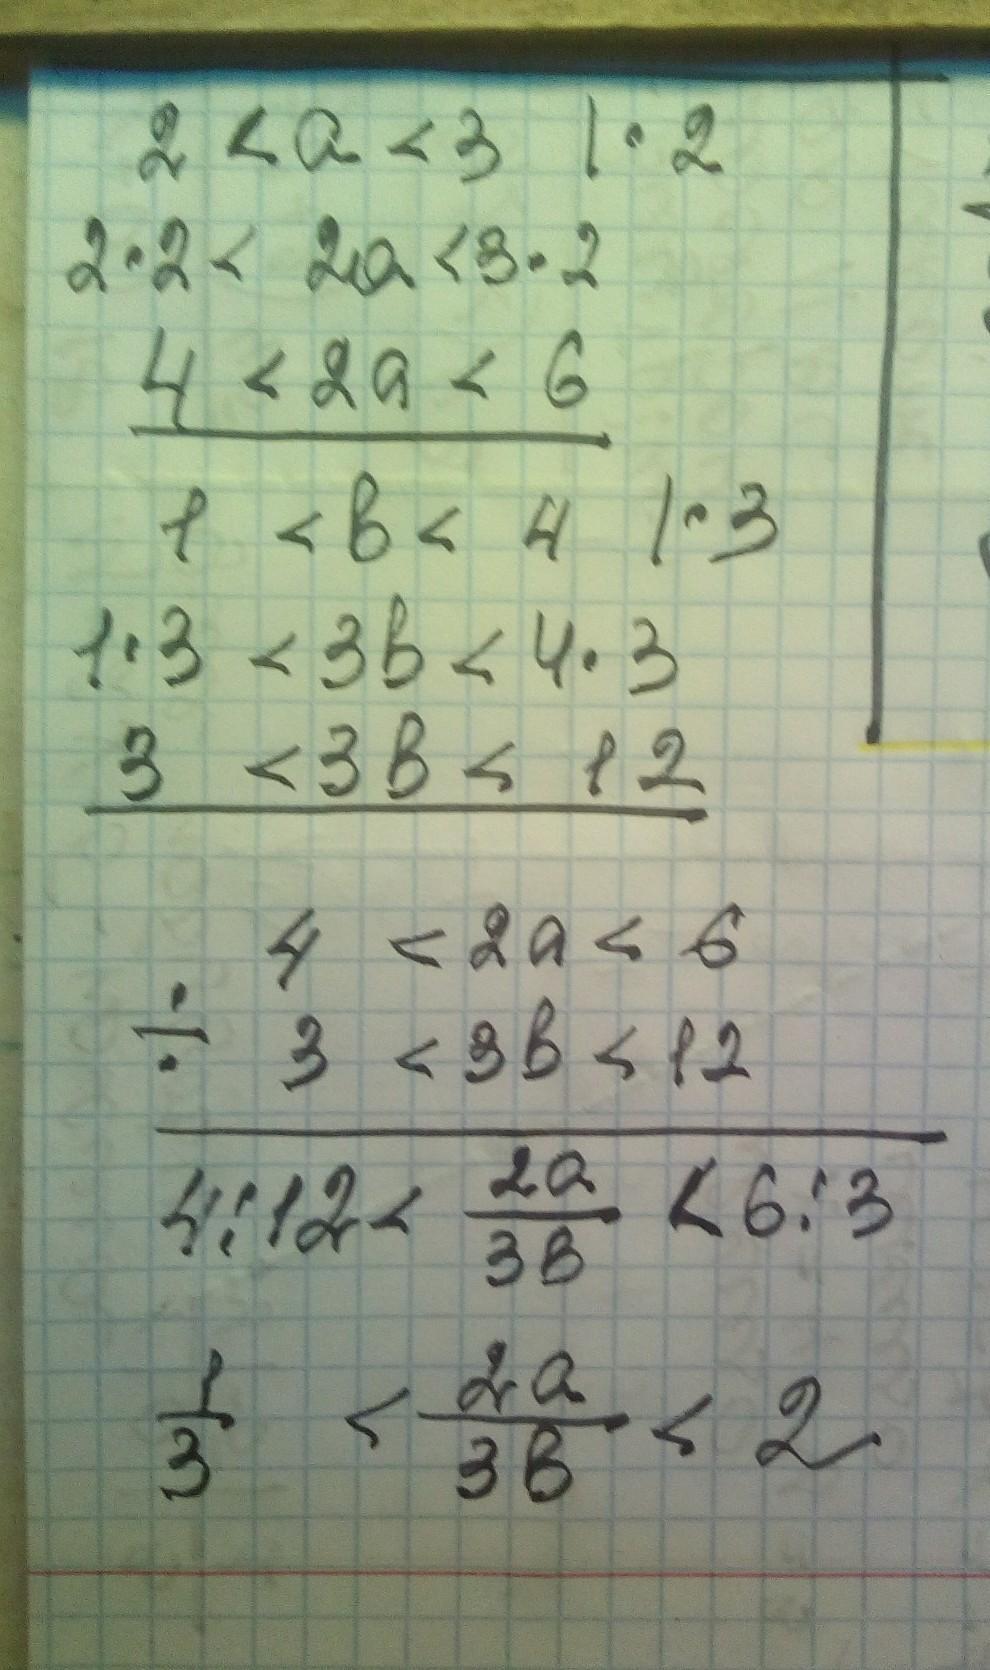 2 < a < 3 | · 2
2 · 2 < 2a < 3 · 2
4 < 2a < 6
1 < в < 4 | · 3
1 · 3 < 3в < 4 · 3
3 < 3в < 12
4 < 2a < 6
÷
3 < 3в < 12
4 : 12 < 2a/3в < 6 : 3
1/3 < 2a/3в < 2